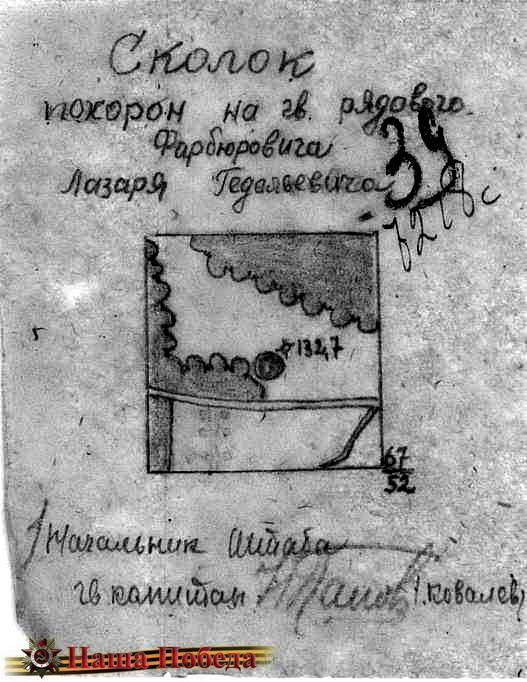 Сколок
похорон на гв. рядового
Фарбюровича
Лазаря Гедельевича
39
132,7
67
52
Начальник Штаба
гв. капитан (Ковалев)
Наша Победа